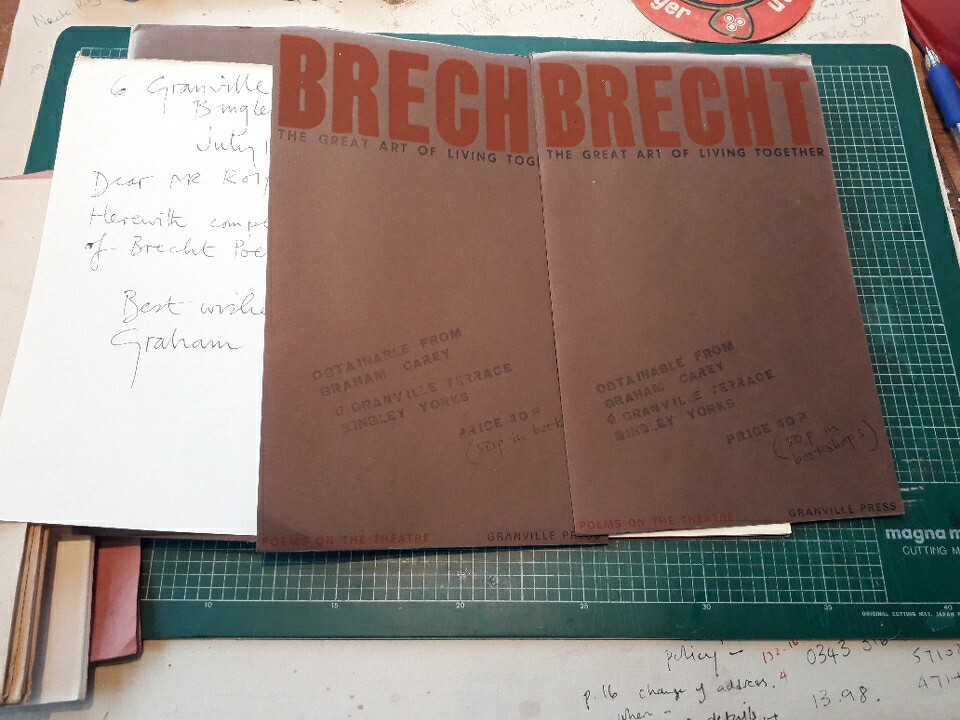 6 Granville
Bingle
July 1
Dear Mr
Herewith compl
of Brecht Poe
Best wishe
Graham
BRECH
THE GREAT ART OF LIVING TOG
OBTAINABLE FROM
GRAHAM CAREY
6 GRANVILLE TERRACE
BINGLEY YORKS
PRICE 40P
(50p in book
POEMS ON THE THEATRE
GRANVILLE PRESS
BRECHT
THE GREAT ART OF LIVING TOGETHER
OBTAINABLE FROM
GRAHAM CAREY
6 GRANVILLE TERRACE
BINGLEY YORKS
PRICE 40P
(50p in
bookshops)
POEMS ON THE THEATRE
GRANVILLE PRESS
magna m
CUTTING M
10 15 20 25 30 35 40
ORIGINAL CUTTING MAT. JAPAN
policy —
0343 316
p.16 change of address. 4
13.98.
when —
details